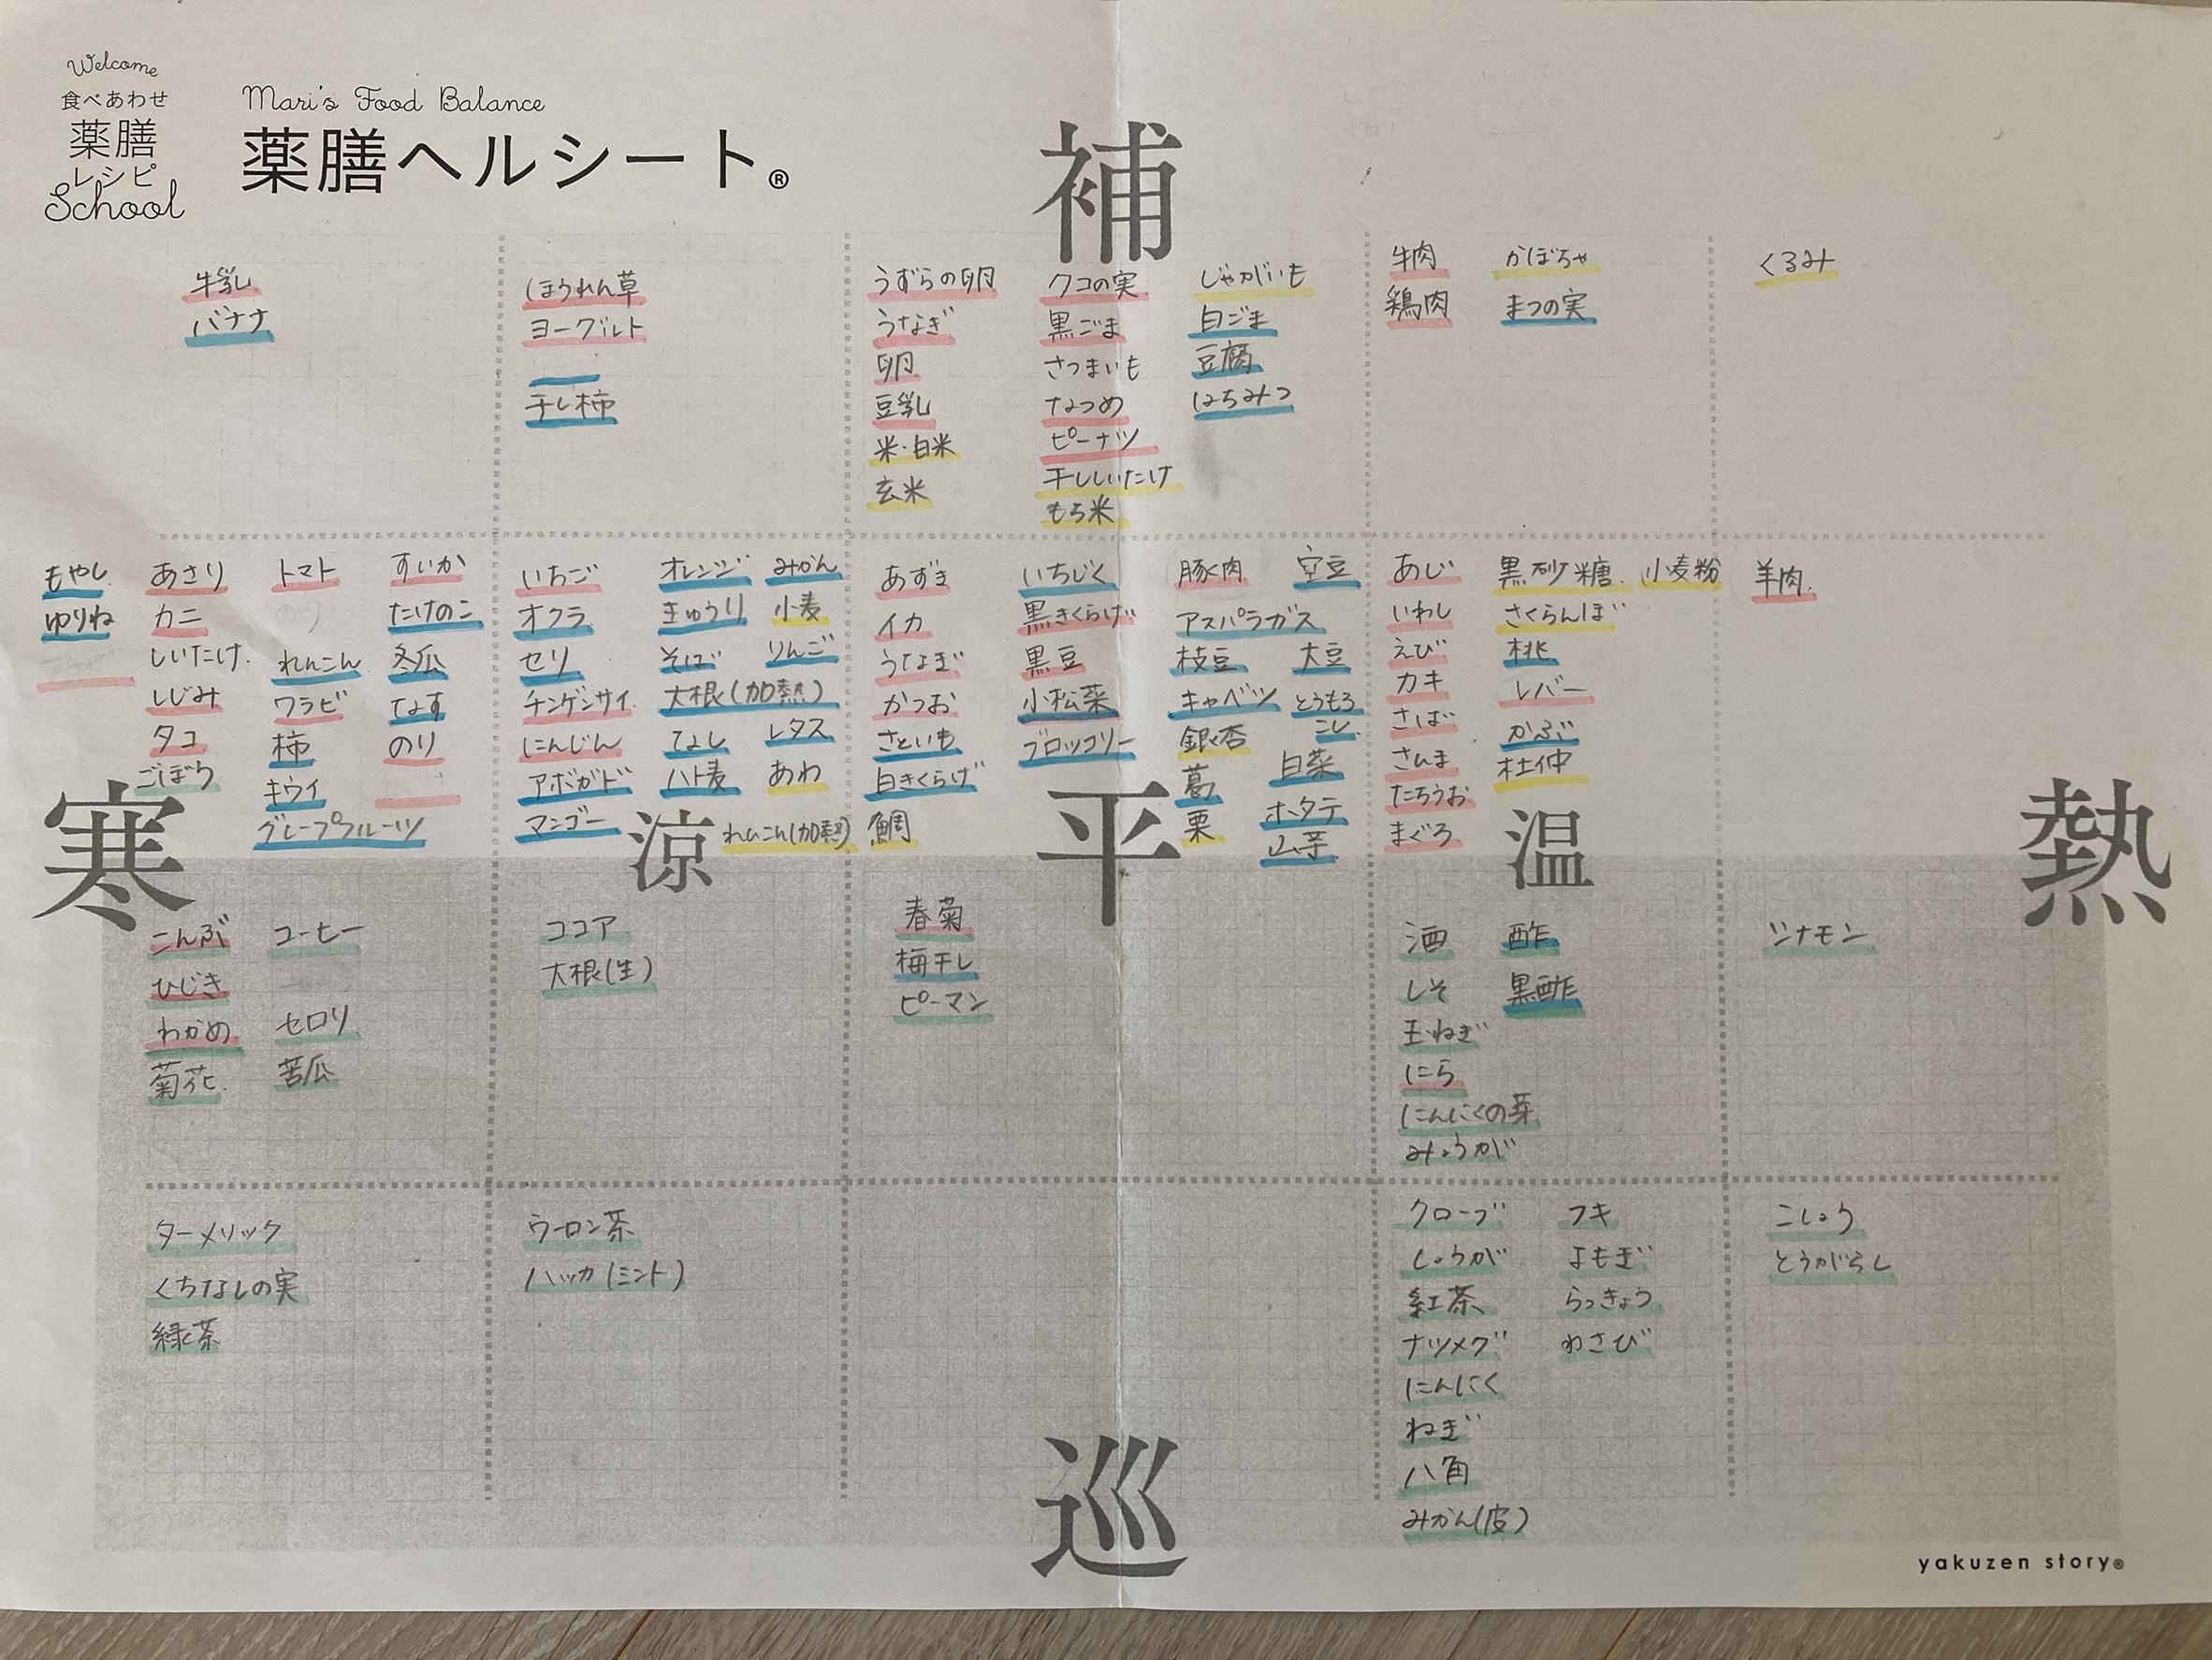 Welcome
食べあわせ
薬膳
レシピ
School
Mari's Food Balance
薬膳ヘルシート®
補
牛乳
バナナ
ほうれん草
ヨーグルト
干し柿
うずらの卵
うなぎ
卵
豆乳
米・白米
玄米
クコの実
黒ごま
さつまいも
なつめ
ピーナツ
干ししいたけ
もち米
じゃがいも
白ごま
豆腐
はちみつ
牛肉
鶏肉
かぼちゃ
まつの実
くるみ
もやし
ゆりね
あさり
カニ
しいたけ
しじみ
タコ
ごぼう
トマト
のり
れんこん
ワラビ
柿
キウイ
グレープフルーツ
すいか
たけのこ
冬瓜
なす
のり
いちご
オクラ
セリ
チンゲンサイ
にんじん
アボガド
マンゴー
オレンジ
きゅうり
そば
大根(加熱)
なし
ハト麦
れんこん(加熱)
みかん
小麦
りんご
レタス
あわ
あずき
イカ
うなぎ
かつお
さといも
白きくらげ
鯛
いちじく
黒きくらげ
黒豆
小松菜
ブロッコリー
豚肉
アスパラガス
枝豆
キャベツ
銀杏
葛
栗
空豆
大豆
とうもろ
こし
白菜
ホタテ
山芋
あじ
いわし
えび
カキ
さば
さんま
たちうお
まぐろ
黒砂糖
さくらんぼ
桃
レバー
かぶ
杜仲
小麦粉
羊肉
寒
涼
平
温
熱
こんぶ
ひじき
わかめ
菊花
コーヒー
セロリ
苦瓜
ココア
大根(生)
春菊
梅干し
ピーマン
酒
しそ
玉ねぎ
にら
にんにくの芽
みょうが
酢
黒酢
シナモン
ターメリック
くちなしの実
緑茶
ウーロン茶
ハッカ(ミント)
クローブ
しょうが
紅茶
ナツメグ
にんにく
ねぎ
八角
みかん(皮)
フキ
よもぎ
らっきょう
わさび
こしょう
とうがらし
巡
yakuzen story®